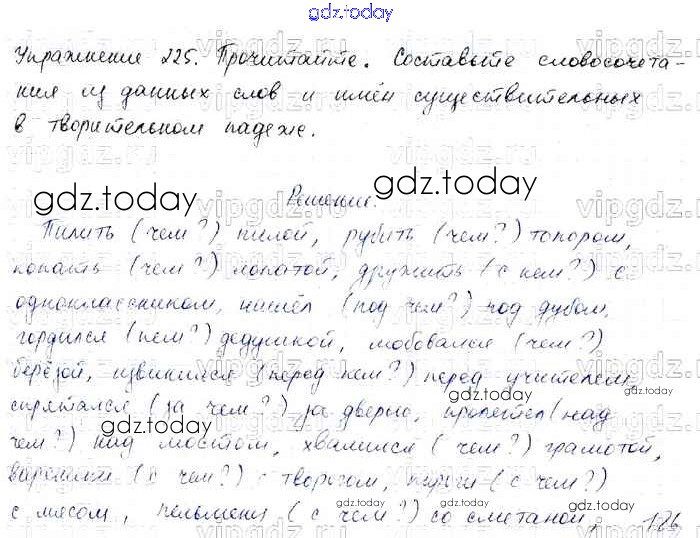 gdz.today
Упражнение 225. Прочитайте. Составьте словосочета-
ния из данных слов и имён существительных
в творительном падеже.
gdz.today
gdz.today
Решение.
Пилить (чем?) пилой, рубить (чем?) топором,
копать (чем?) лопатой, дружить (с кем?) с
одноклассником, нашёл (под чем?) под дубом,
гордился (кем?) дедушкой, любовался (чем?)
берёзой, извинился (перед кем?) перед учителем,
gdz.today
спрятался (за чем?) за дверью, пролетел (над
gdz.today
чем?) над мостом, хвалился (чем?) грамотой,
вареники (с чем?) с творогом, пироги (с чем?)
gdz.today
gdz.today
с мясом, пельмени (с чем?) со сметаной,
126
vipgdz.ru